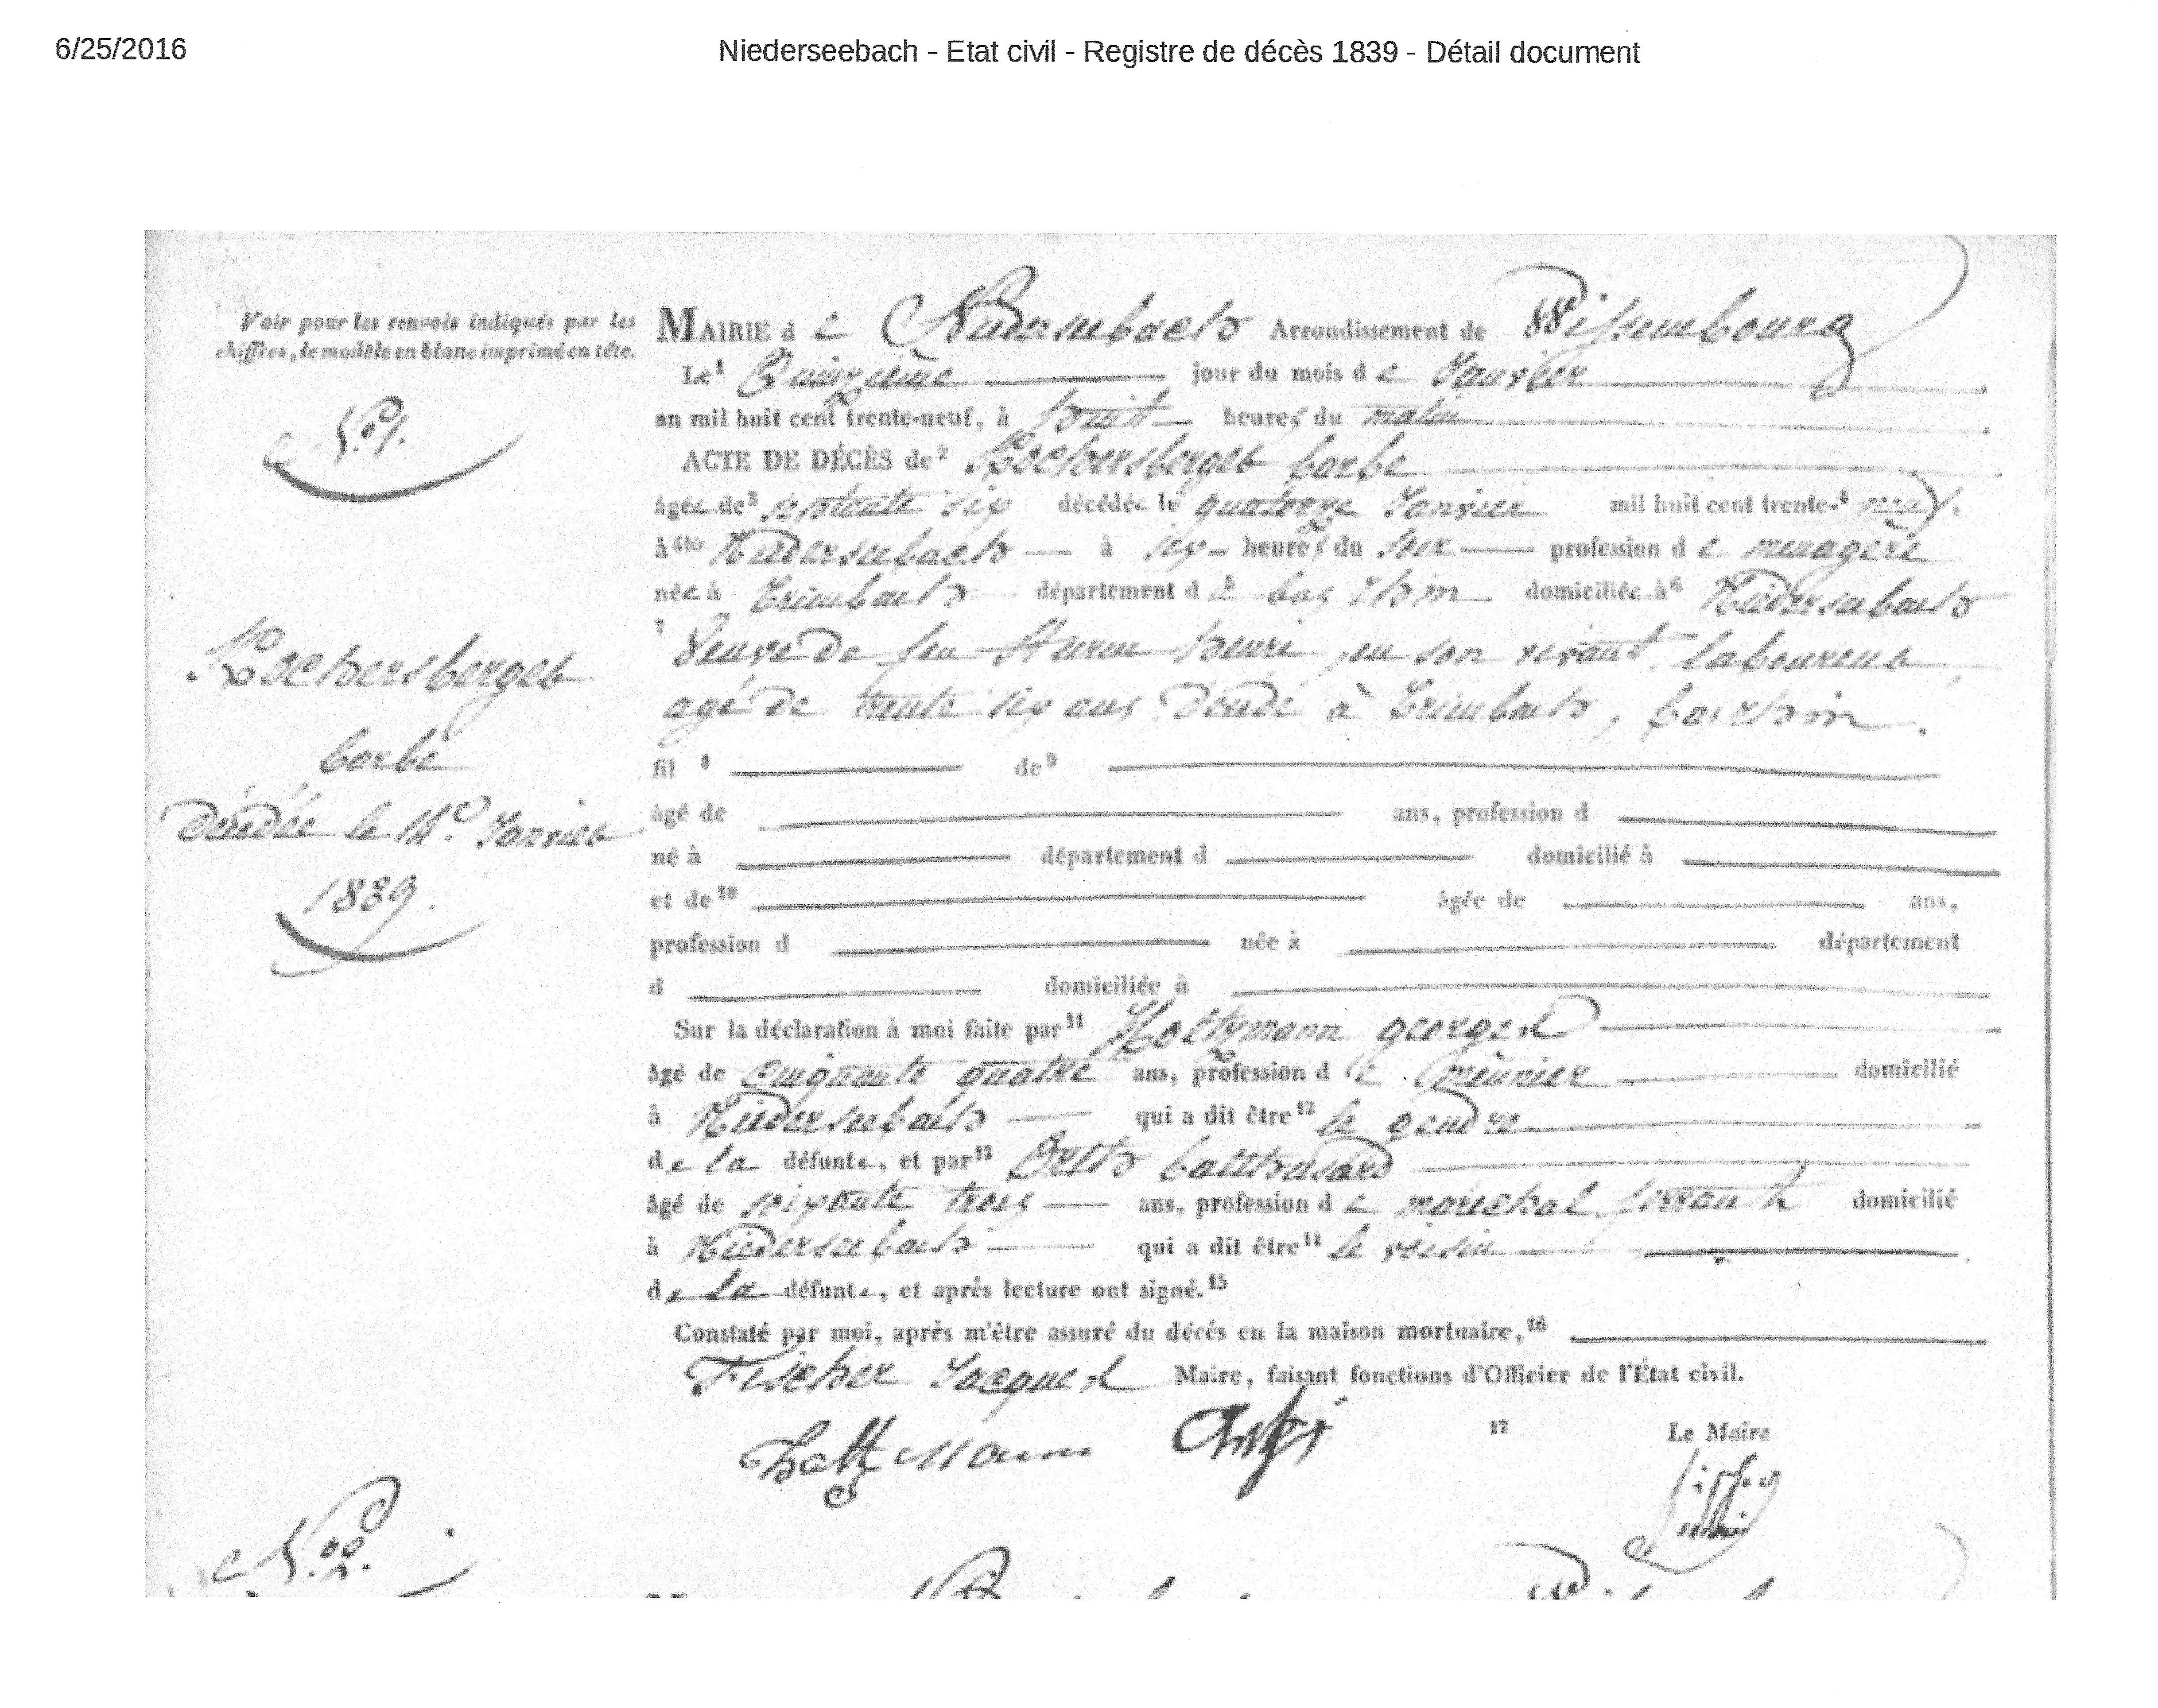 6/25/2016
Niederseebach - Etat civil - Registre de décès 1839 - Détail document
Voir pour les renvois indiqués par les
chiffres, le modèle en blanc imprimé en tête.
N.º 1.
Kochersberger
barbe
décédée le 14.º Janvier
1839.
MAIRIE de Niederseebach Arrondissement de Wissembourg
Le¹ Quinzième jour du mois de Janvier
an mil huit cent trente-neuf, à huit heures du matin
ACTE DE DÉCÈS de² Kochersberger barbe
âgée de³ septante six décédée le quatorze Janvier mil huit cent trente-⁴ neuf,
à ⁴ᵇⁱˢ Niederseebach à six heures du soir profession de menagère
née à Trimbach département d⁵ bas rhin domiciliée à⁶ Niederseebach
⁷ Veuve de feu Sturm henri, en son vivant laboureur,
agé de trente six ans décédé à Trimbach, bas rhin.
fil ⁸ de⁹
âgé de ans, profession d
né à département d domicilié à
et de¹⁰ âgée de ans,
profession d née à département
d domiciliée à
Sur la déclaration à moi faite par¹¹ Holtzmann george
âgé de cinquante quatre ans, profession de meunier domicilié
à Niederseebach qui a dit être¹² le gendre
de la défunte, et par¹³ balthasard
âgé de soixante trois ans, profession de marechal ferrant domicilié
à Niederseebach qui a dit être¹⁴ le voisin
de la défunte, et après lecture ont signé.¹⁵
Constaté par moi, après m'être assuré du décès en la maison mortuaire,¹⁶
Fischer Jacques Maire, faisant fonctions d'Officier de l'État civil.
Holtzmann
¹⁷ Le Maire
N.º 2.